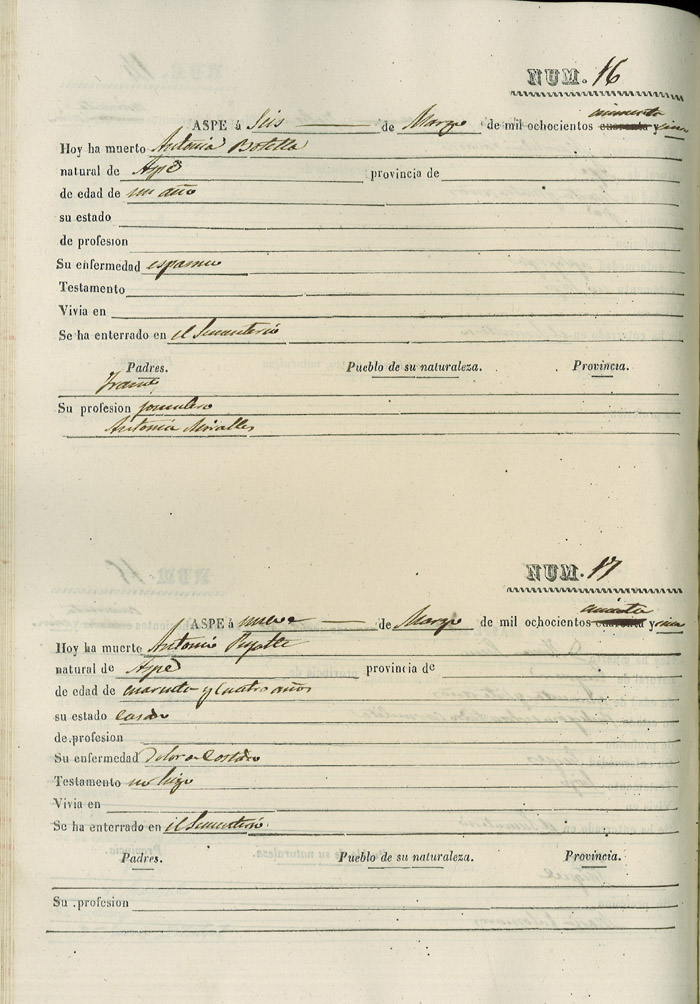 NUM. 16
ASPE á Seis de Marzo de mil ochocientos cincuenta y cinco
Hoy ha muerto Antonia Botella
natural de Aspe provincia de
de edad de un año
su estado
de profesion
Su enfermedad espasmo
Testamento
Vivia en
Se ha enterrado en el Sementerio
Padres. Pueblo de su naturaleza. Provincia.
Su profesion jornalero
Antonia Miralles
NUM. 17
ASPE á nueve de Marzo de mil ochocientos cincuenta y cinco
Hoy ha muerto Antonio
natural de Aspe provincia de
de edad de cuarenta y cuatro años
su estado casado
de profesion
Su enfermedad Dolor a Costado
Testamento no hizo
Vivia en
Se ha enterrado en el Sementerio
Padres. Pueblo de su naturaleza. Provincia.
Su profesion